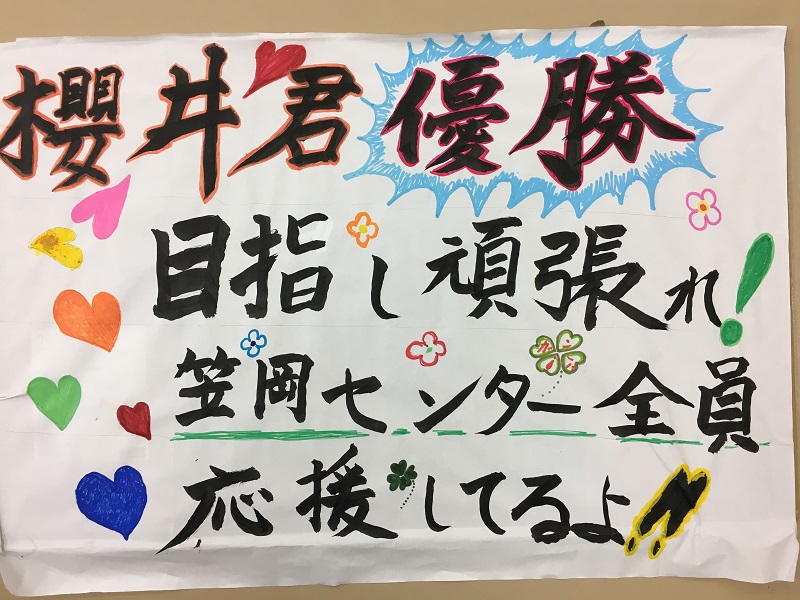 櫻井君優勝
目指し頑張れ!
笠岡センター全員
応援してるよ!!